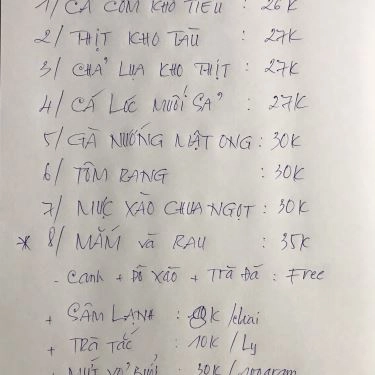 1/ CÁ CƠM KHO TIÊU : 26K
2/ THỊT KHO TÀU : 27K
3/ CHẢ LỤA KHO THỊT : 27K
4/ CÁ LÓC MUỐI SẢ : 27K
5/ GÀ NƯỚNG MẬT ONG : 30K
6/ TÔM RANG : 30K
7/ MỰC XÀO CHUA NGỌT : 30K
* 8/ MẮM và RAU : 35K
- Canh + Đồ Xào + Trà Đá : Free
+ SÂM LẠNH : /chai
+ TRÀ TẮC : 10K / Ly
+ MỨT VỎ BƯỞI : 30K /